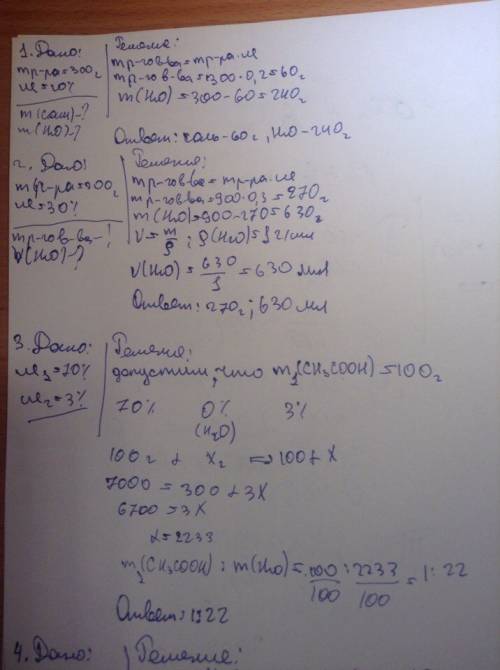 1. Дано:
mр-ра=300г
ω=20%
m(соли)-?
m(H₂O)-?
Решение:
mр-гов-ва=mр-ра·ω
mр-гов-ва=300·0,2=60г
m(H₂O)=300-60=240г
Ответ: соль-60г, H₂O-240г
2. Дано:
mр-ра=900г
ω=30%
mр-гов-ва-?
V(H₂O)-?
Решение:
mр-гов-ва=mр-ра·ω
mр-гов-ва=900·0,3=270г
m(H₂O)=900-270=630г
V=m/ρ; ρ(H₂O)=1г/мл
V(H₂O)=630/1=630мл
Ответ: 270г; 630мл
3. Дано:
ω₁=70%
ω₂=3%
Решение:
допустим, что m₁(CH₃COOH)=100г
70% 0% 3%
(H₂O)
100г + xг => 100+x
7000=300+3x
6700=3x
x=2233
m₁(CH₃COOH):m(H₂O)=100/100:2233/100=1:22
Ответ: 1:22
4. Дано:
Решение: